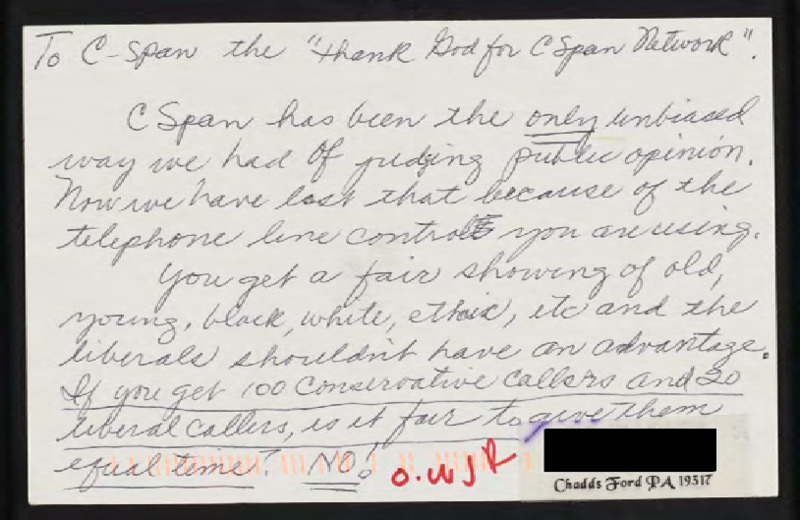 To C-Span the "Thank God for C Span Network".
C Span has been the only unbiased
way we had of judging public opinion.
Now we have lost that because of the
telephone line controls you are using.
You get a fair showing of old,
young, black, white, ethnic, etc and the
liberals shouldn't have an advantage.
If you get 100 Conservative Callers and 20
liberal callers, is it fair to give them
equal time? NO!
O.WJR
Chadds Ford PA 19317